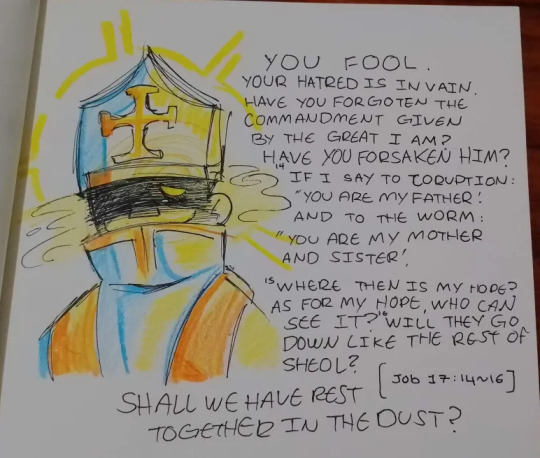 YOU FOOL.
YOUR HATRED IS IN VAIN.
HAVE YOU FORGOTEN THE
COMMANDMENT GIVEN
BY THE GREAT I AM?
HAVE YOU FORSAKEN HIM?
14 IF I SAY TO CORUPTION:
"YOU ARE MY FATHER'.
AND TO THE WORM:
"YOU ARE MY MOTHER
AND SISTER'.
15 WHERE THEN IS MY HOPE?
AS FOR MY HOPE, WHO CAN
SEE IT? 16 WILL THEY GO
DOWN LIKE THE REST OF
SHEOL?
[JOB 17:14~16]
SHALL WE HAVE REST
TOGETHER IN THE DUST?